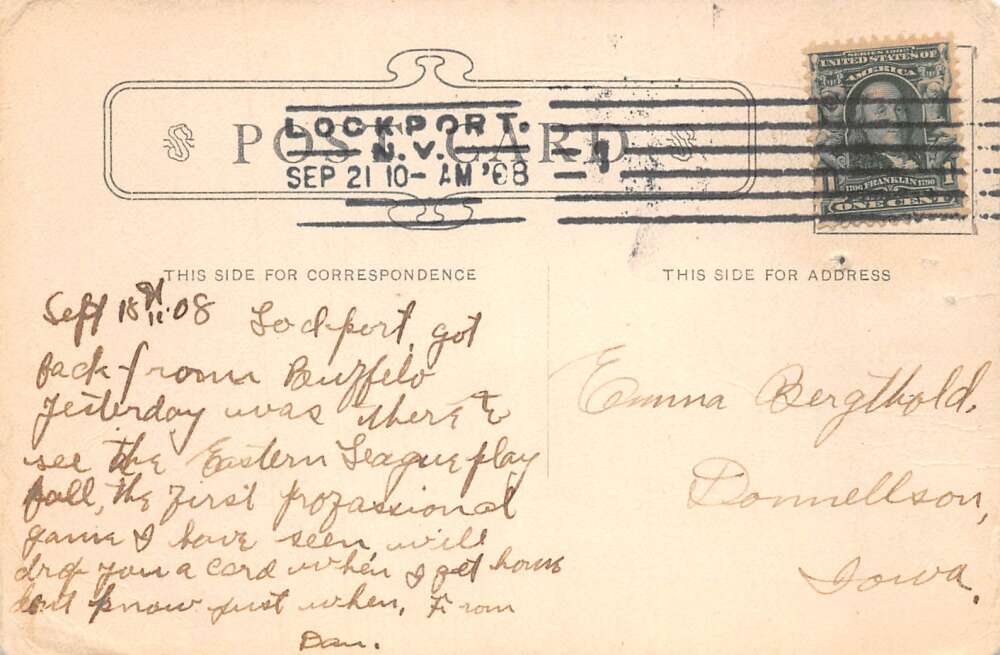 POST CARD
LOCKPORT.
N.Y.
SEP 21 10-AM '08
1
SERIES 1902
UNITED STATES OF
AMERICA
1706 FRANKLIN 1790
1 1
ONE CENT
THIS SIDE FOR CORRESPONDENCE
Sept 18 08
Lockport, got
back from Buffelo
yesterday was there to
see the Eastern League play
ball, the first profassional
game I have seen, will
drop you a card when I get home
dont know just when, From
Dan.
THIS SIDE FOR ADDRESS
Emma Bergthold.
Donnellson,
Iowa.